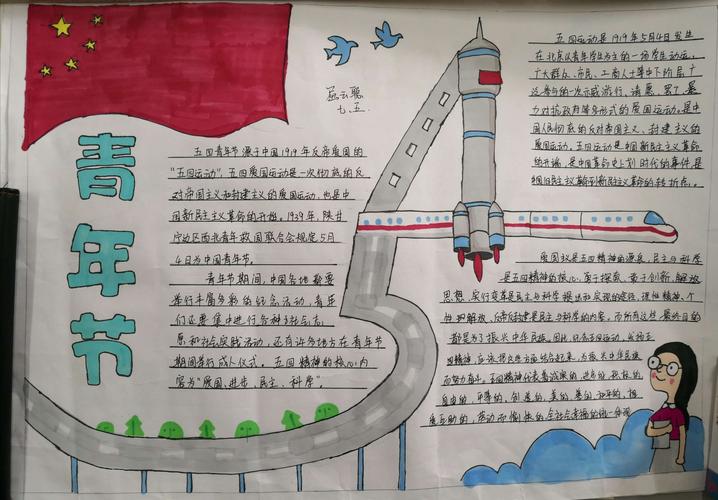 青年节
七、五
五四青年节源于中国1919年反帝爱国的
"五四运动",五四爱国运动是一次彻底的反
对帝国主义和封建主义的爱国运动,也是中
国新民主主义革命的开始。1939年,陕甘
宁边区西北青年救国联合会规定5月
4日为中国青年节。
青年节期间,中国各地都要
举行丰富多彩的纪念活动,青年
们还要集中进行各种社会志
愿和社会实践活动,还有许多地方在青年节
期间举行成人仪式。五四精神的核心内
容为"爱国、进步、民主、科学"。
五四运动是1919年5月4日发生
在北京以青年学生为主的一场学生运动,
广大群众、市民、工商人士等中下阶层广
泛参与的一次示威游行、请愿、罢工、暴
力对抗政府等多形式的爱国运动,是中
国人民彻底的反对帝国主义、封建主义的
爱国运动。五四运动是中国新民主主义革命
的开端,是中国革命史上划时代的事件,是
中国旧民主主义革命到新民主主义革命的转折点。
爱国主义是五四精神的源泉,民主与科学
是五四精神的核心,勇于探索、勇于创新、解放
思想、实行变革是民主与科学提出和实现的途径,理性精神、个
性解放、反帝反封建是民主与科学的内容。而所有这些,最终目的
都是为了振兴中华民族。因此,纪念五四运动,
四精神,应该将这些方面结合起来,为振兴中华民族
而努力奋斗。五四精神代表着诚实的、进步的、积极的、
自由的、平等的、创造的、美的、善的、和平的、相
爱互助的、劳动而愉快的、全社会幸福的